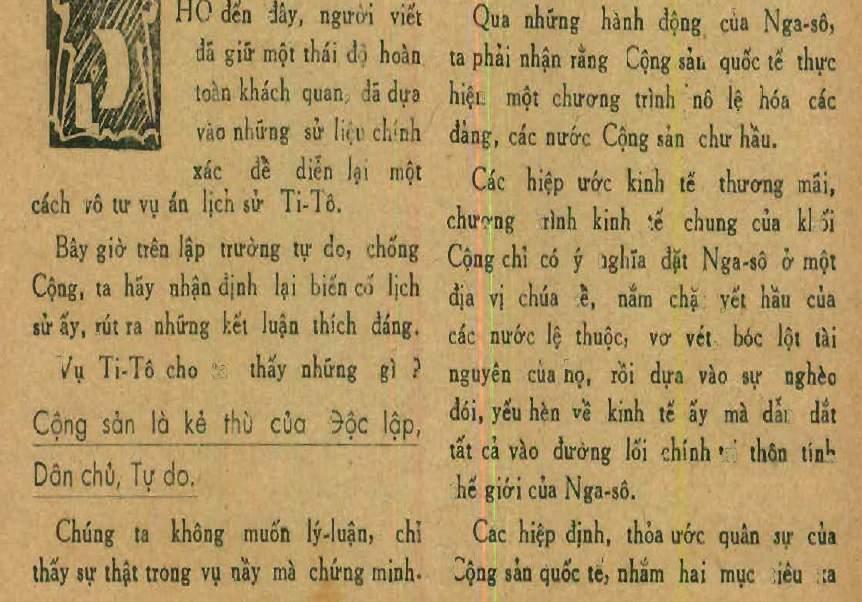 HO đến đây, người viết
đã giữ một thái độ hoàn
toàn khách quan, đã dựa
vào những sử liệu chính
xác để diễn lại một
cách vô tư vụ án lịch sử Ti-Tô.
Bây giờ trên lập trường tự do, chống
Cộng, ta hãy nhận định lại biến cố lịch
sử ấy, rút ra những kết luận thích đáng.
Vụ Ti-Tô cho ta thấy những gì ?
Cộng sản là kẻ thù của Độc lập,
Dân chủ, Tự do.
Chúng ta không muốn lý-luận, chỉ
thấy sự thật trong vụ nầy mà chứng minh.
Qua những hành động của Nga-sô,
ta phải nhận rằng Cộng sản quốc tế thực
hiện một chương trình nô lệ hóa các
đảng, các nước Cộng sản chư hầu.
Các hiệp ước kinh tế thương mãi,
chương trình kinh tế chung của khối
Cộng chỉ có ý nghĩa đặt Nga-sô ở một
địa vị chúa tể, nắm chặt yết hầu của
các nước lệ thuộc, vơ vét bóc lột tài
nguyên của họ, rồi dựa vào sự nghèo
đói, yếu hèn về kinh tế ấy mà dẫn dắt
tất cả vào đường lối chính trị thôn tính
thế giới của Nga-sô.
Các hiệp định, thỏa ước quân sự của
Cộng sản quốc tế, nhắm hai mục tiêu :